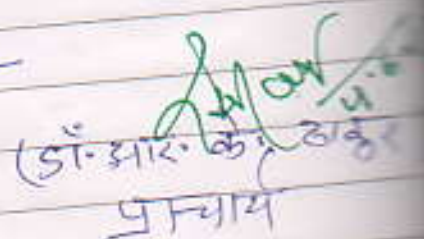 (डॉ. आर. के. ठाकुर
प्राचार्य